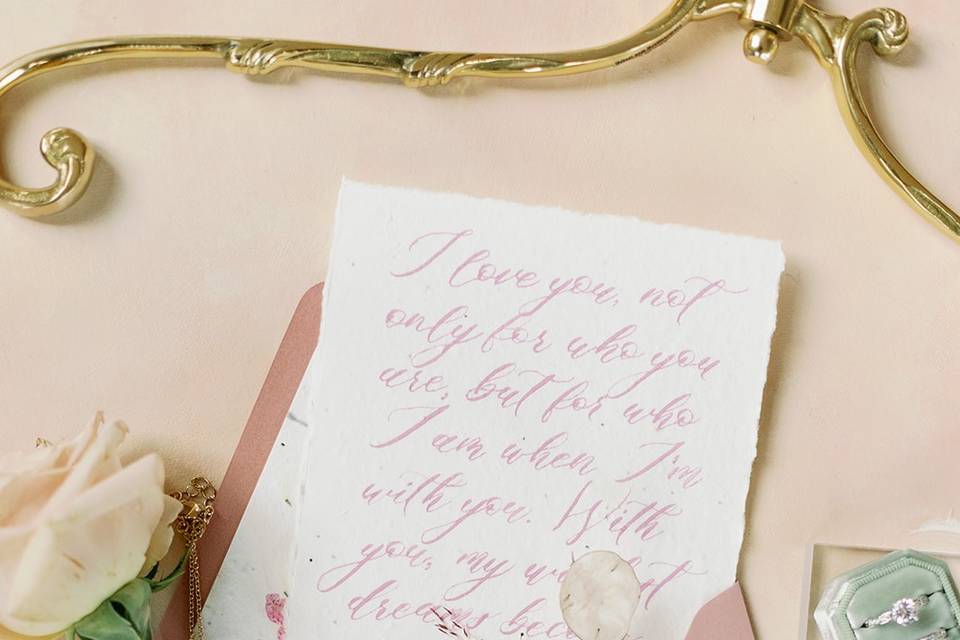 I love you, not
only for who you
are, but for who
I am when I'm
with you. With
you, my
dreams